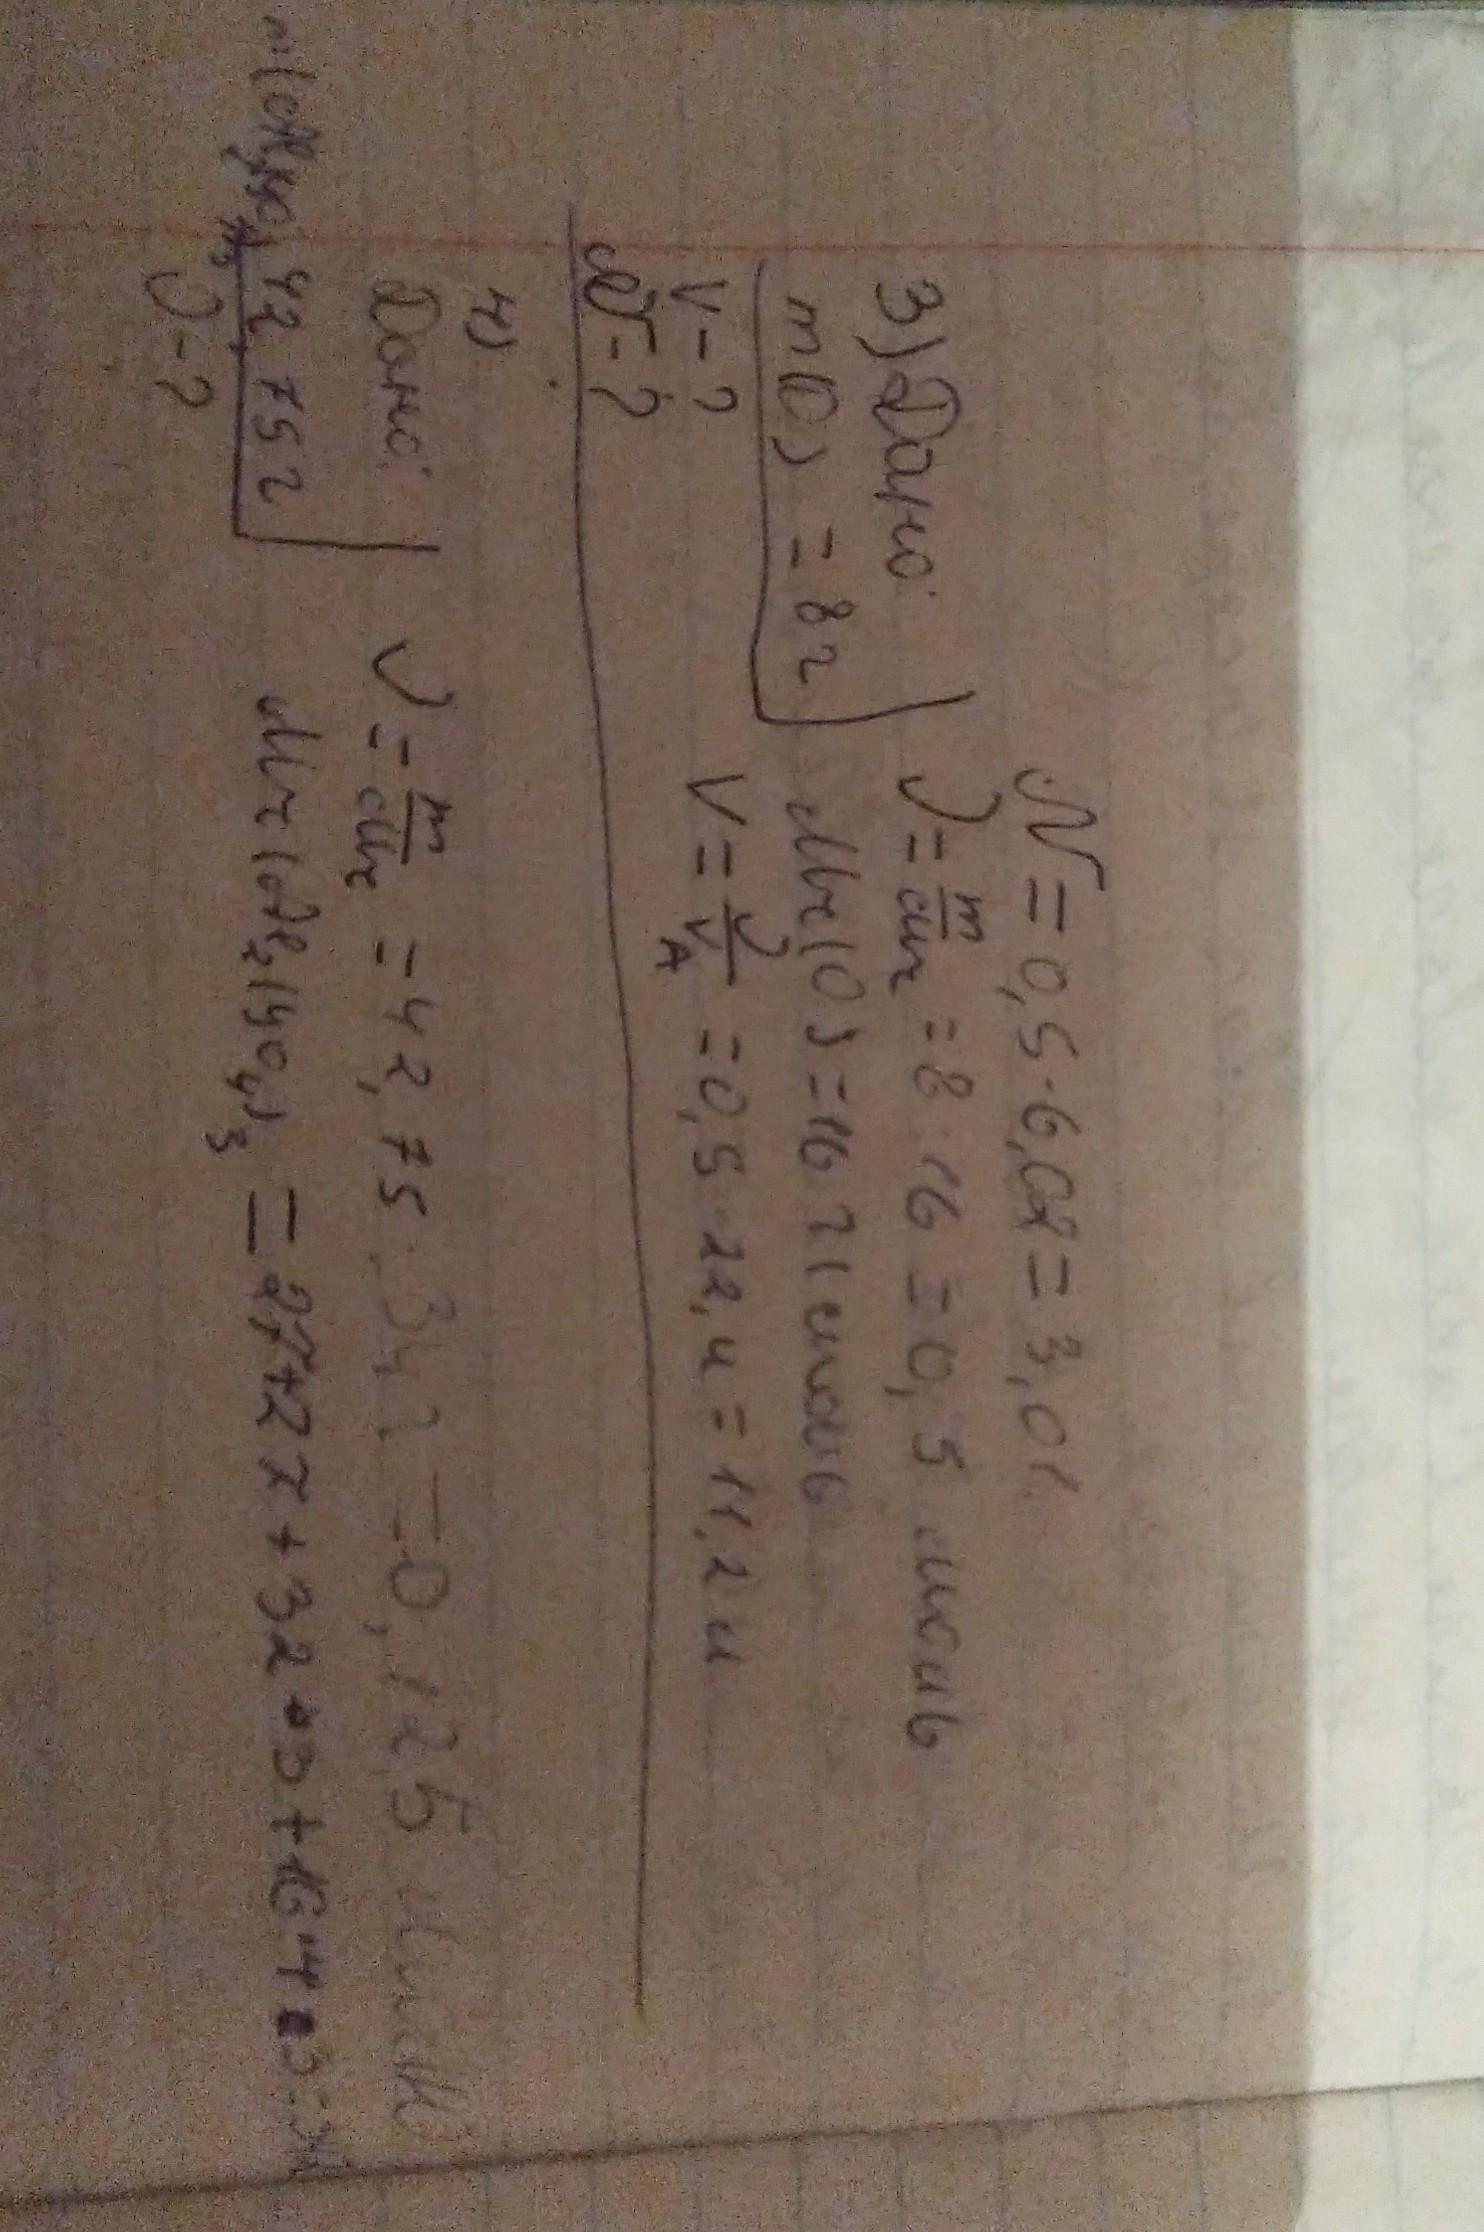 N = 0,5·6,02 = 3,01
3) Дано:
m(O) = 8г
V - ?
N - ?
ν = m/Mr = 8:16 = 0,5 моль
Mr(O) = 16 г/моль
V = ν/VA = 0,5·22,4 = 11,2 л
4)
Дано:
42,75г
ν - ?
ν = m/Mr = 42,75:342 = 0,125 моль
Mr(Al2(SO4)3 = 27+27+32·3+16·4·3